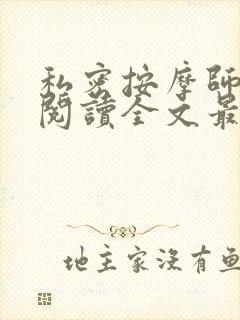 私密按摩師
閱讀全文最
地主家沒有魚